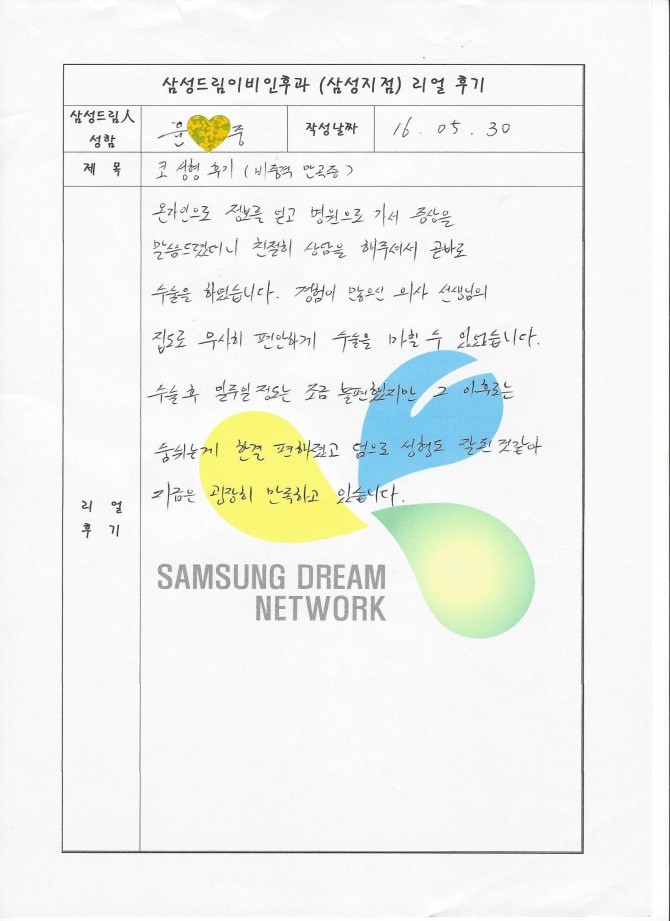 삼성드림이비인후과 (삼성지점) 리얼 후기
삼성드림人
성함
윤 중
작성날짜
16. 05. 30
제 목
코 성형 후기 (비중격 만곡증)
온라인으로 정보를 얻고 병원으로 가서 증상을
말씀드렸더니 친절히 상담을 해주셔서 곧바로
수술을 하였습니다. 경험이 많으신 의사 선생님의
집도로 무사히 편안하게 수술을 마칠 수 있었습니다.
수술 후 일주일 정도는 조금 불편했지만 그 이후로는
숨쉬는게 한결 편해졌고 덤으로 성형도 잘된 것같아
지금은 굉장히 만족하고 있습니다.
리 얼
후 기
SAMSUNG DREAM
NETWORK